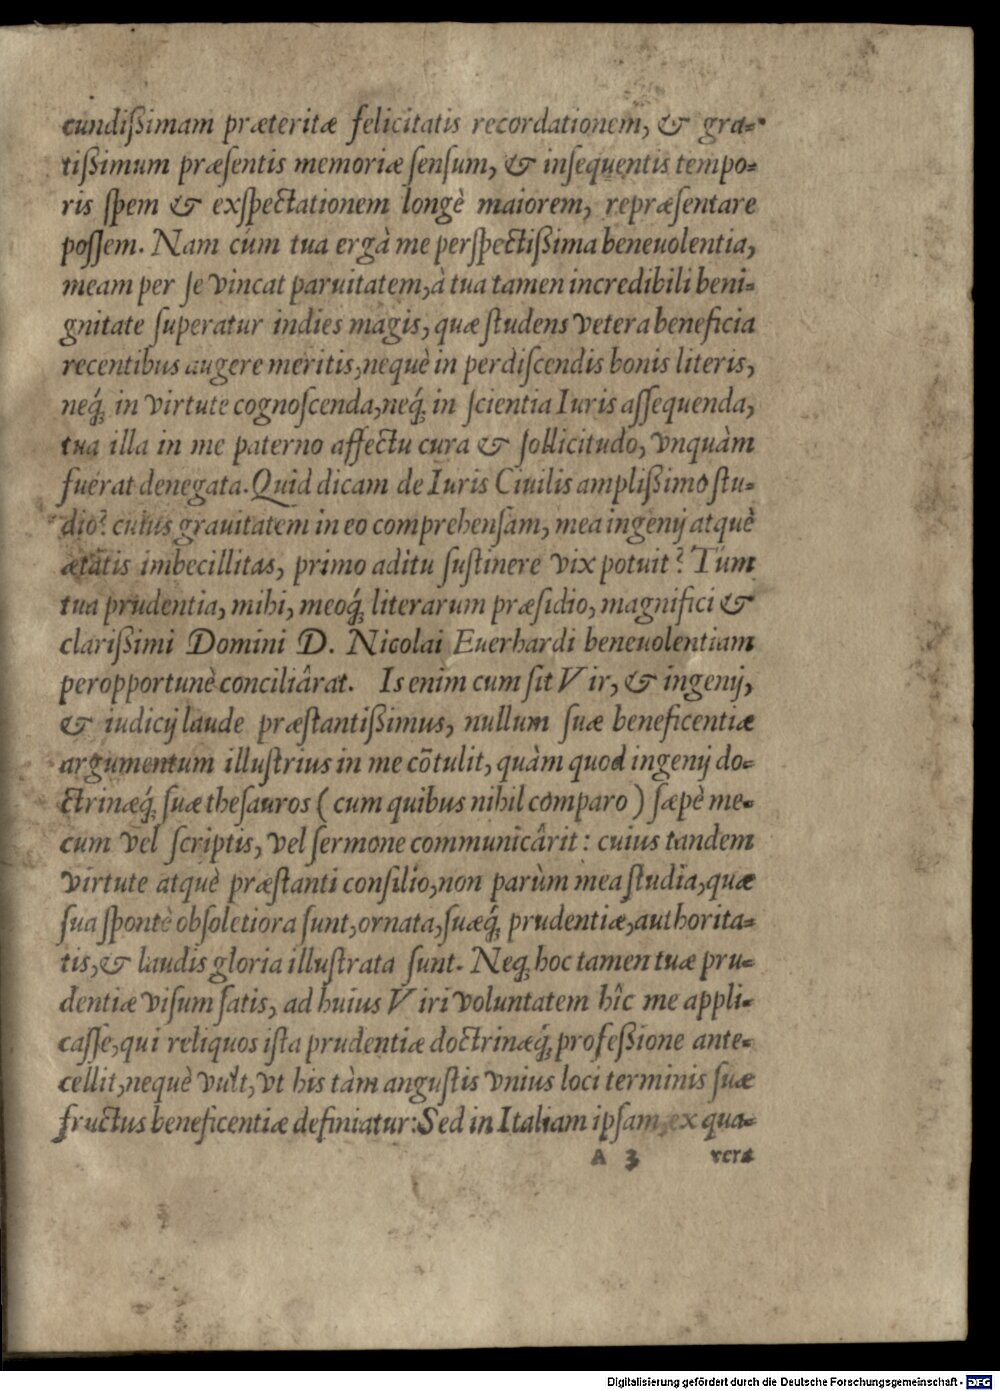 cundißimam præteritæ felicitatis recordationem, & gra=
tißimum præsentis memoriæ sensum, & insequentis tempo=
ris spem & exspectationem longè maiorem, repræsentare
possem. Nam cúm tua ergà me perspectißima beneuolentia,
meam per se vincat paruitatem, à tua tamen incredibili beni=
gnitate superatur indies magis, quæ studens vetera beneficia
recentibus augere meritis, nequè in perdiscendis bonis literis,
neq́; in virtute cognoscenda, neq́; in scientia Iuris assequenda,
tua illa in me paterno affectu cura & sollicitudo, vnquàm
fuerat denegata. Quid dicam de Iuris Ciuilis amplißimo stu=
dio? cuius grauitatem in eo comprehensam, mea ingenij atquè
ætatis imbecillitas, primo aditu sustinere vix potuit? Tum
tua prudentia, mihi, meoq́; literarum præsidio, magnifici &
clarißimi Domini D. Nicolai Euerhardi beneuolentiam
peropportunè conciliârat. Is enim cum sit Vir, & ingenij,
& iudicij laude præstantißimus, nullum suæ beneficentiæ
argumentum illustrius in me cõtulit, quàm quod ingenij do=
ctrinæq́; suæ thesauros ( cum quibus nihil comparo ) sæpè me=
cum vel scriptis, vel sermone communicârit : cuius tandem
virtute atquè præstanti consilio, non parùm mea studia, quæ
sua spontè obsoletiora sunt, ornata, suæq́; prudentiæ, authorita=
tis, & laudis gloria illustrata sunt. Neq; hoc tamen tuæ pru=
dentiæ visum satis, ad huius Viri voluntatem hîc me appli=
casse, qui reliquos ista prudentiæ doctrinæq́; profeßione ante=
cellit, nequè vult, vt his tàm angustis vnius loci terminis suæ
fructus beneficentiæ definiatur: Sed in Italiam ipsam, ex qua=
A 3 vera
Digitalisierung gefördert durch die Deutsche Forschungsgemeinschaft - DFG